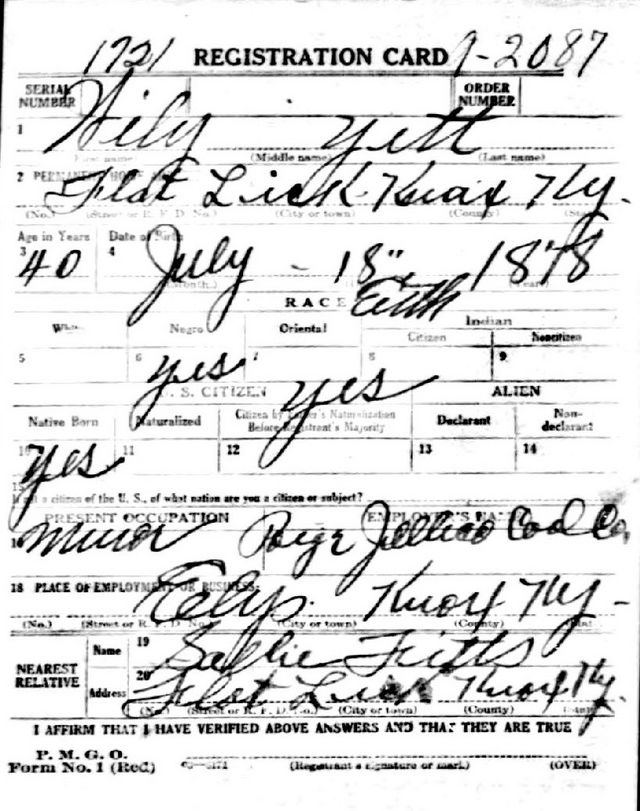 1721 REGISTRATION CARD 9-2087
SERIAL NUMBER ORDER NUMBER
1 Wily Yett
(First name) (Middle name) (Last name)
2 PERMANENT HOME ADDRESS
Flat Lick Knox Ky.
(No.) (Street or R. F. D. No.) (City or town) (County) (State)
Age in Years Date of Birth
3 40 4 July - 18" 1878
(Month.) (Year)
RACE
White Negro Oriental Indian
Citizen Noncitizen
5 6 yes 7 8 9
U. S. CITIZEN ALIEN
Native Born Naturalized Citizen by Father's Naturalization Before Registrant's Majority Declarant Non-declarant
10 yes 11 12 yes 13 14
15
If not a citizen of the U. S., of what nation are you a citizen or subject?
PRESENT OCCUPATION EMPLOYER'S NAME
16 miner Jellico Coal Co.
18 PLACE OF EMPLOYMENT OR BUSINESS:
Elys Knox Ky-
(No.) (Street or R. F. D. No.) (City or town) (County) (State)
NEAREST RELATIVE Name 19 Sallie Fitts
Address 20 Flat Lick Knox Ky.
(No.) (Street or R. F. D. No.) (City or town) (County) (State)
I AFFIRM THAT I HAVE VERIFIED ABOVE ANSWERS AND THAT THEY ARE TRUE
P. M. G. O.
Form No. 1 (Red) (Registrant's signature or mark) (OVER)